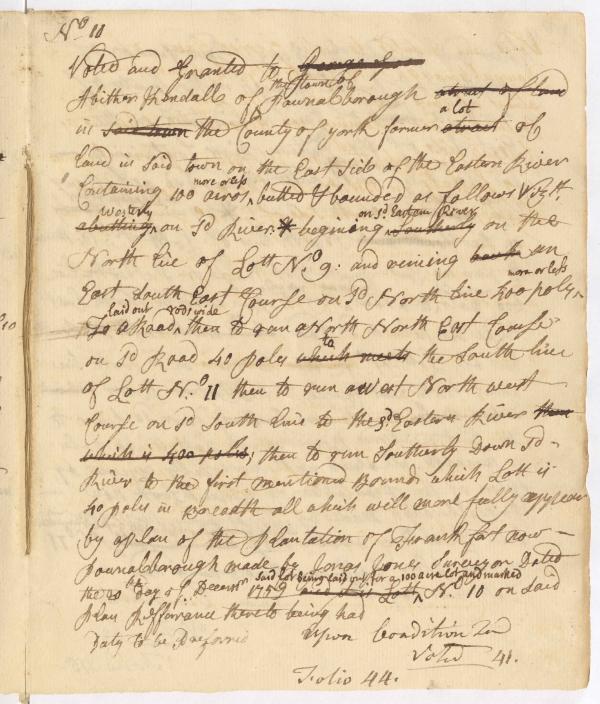 No 11
Voted and Granted to George
the Town of
Abither Kendall of Pownalborough a tract of land
a lot
in said town the County of york farmer a tract of
Land in said town on the East Side of the Eastern River
more or less
Containing 100 acres, butted & bounded as follows Vizt.
Westerly on sd. Eastern River
abutting on sd River. & begining Southerly on the
North line of Lott No. 9: and runing back an
more or less
East South East Course on sd North line 400 poles,
laid out rods wide
To a Road, then to run a North North East Course
to
on sd Road 40 poles which meets the South line
of Lott No. 11 then to run a West North west
Course on sd South line to the sd. Eastern River then
which is 400 poles, then to run Southerly Down sd-
River to the first mentioned Bounds which Lott is
40 poles in Breadth all which will more fully appear
by a plan of the plantation of Frankfort now -
pownalborough made by Jonas Jones Surveyor Dated
Said Lot being laid out for a 100 acre lot and marked
the 20th Day of Decemr 1759 Lott, No. 10 on said
plan Refferrance thereto being had
Duty to be Preferred upon Condition
Voted 41.
Folio 44.